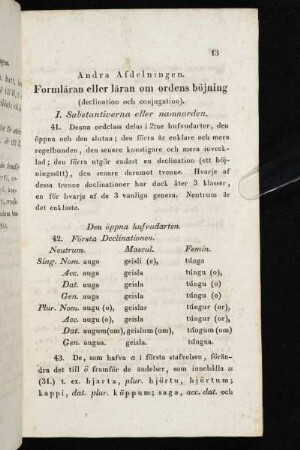 13
Andra Afdelningen.
Formläran eller läran om ordens böjning
(declination och conjugation).
I. Substantiverna eller namnorden.
41. Denna ordclass delas i 2:ne hufvudarter, den
öppna och den slutna; den förra är enklare och mera
regelbunden, den senare konstigare och mera inveck-
lad; den förra utgör endast en declination (ett böj-
ningssätt), den senare deremot tvenne. Hvarje af
dessa trenne declinationer har dock åter 3 klasser,
en för hvarje af de 3 vanliga genera. Neutrum är
det enklaste.
Den öppna hufvudarten.
42. Första Declinationen.
Neutrum. Mascul. Femin.
Sing. Nom. auga geisli (e), túnga
Acc. auga geisla túngu (o)
Dat. auga geisla túngu (o)
Gen. auga geisla túngu (o)
Plur. Nom. augu (o), geislar túngur (or),
Acc. augu (o), geisla túngur (or),
Dat. augum(om), geislum (om), túngum (om)
Gen. augna. geisla. túngna.
43. De, som hafva a i första stafvelsen, förän-
dra det till ö framför de ändelser, som innehålla u
(31.) t. ex. hjarta, plur. hjörtu, hjörtum;
kappi, dat. plur. köppum; saga, acc. dat. och